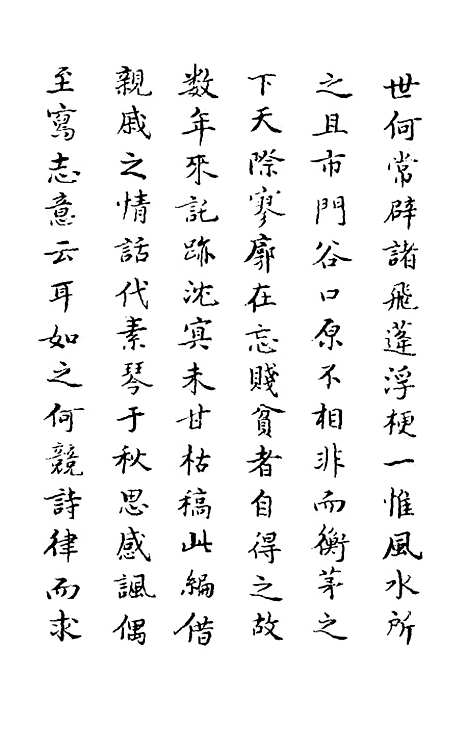 世何常辟諸飛蓬浮梗一惟風水所
之且市門谷口原不相非而衡茅之
下天際寥廓在忘賤貧者自得之故
数年來託跡沈冥未甘枯稿此編借
親戚之情話代素琴于秋思感諷偶
至寫志意云耳如之何競詩律而求